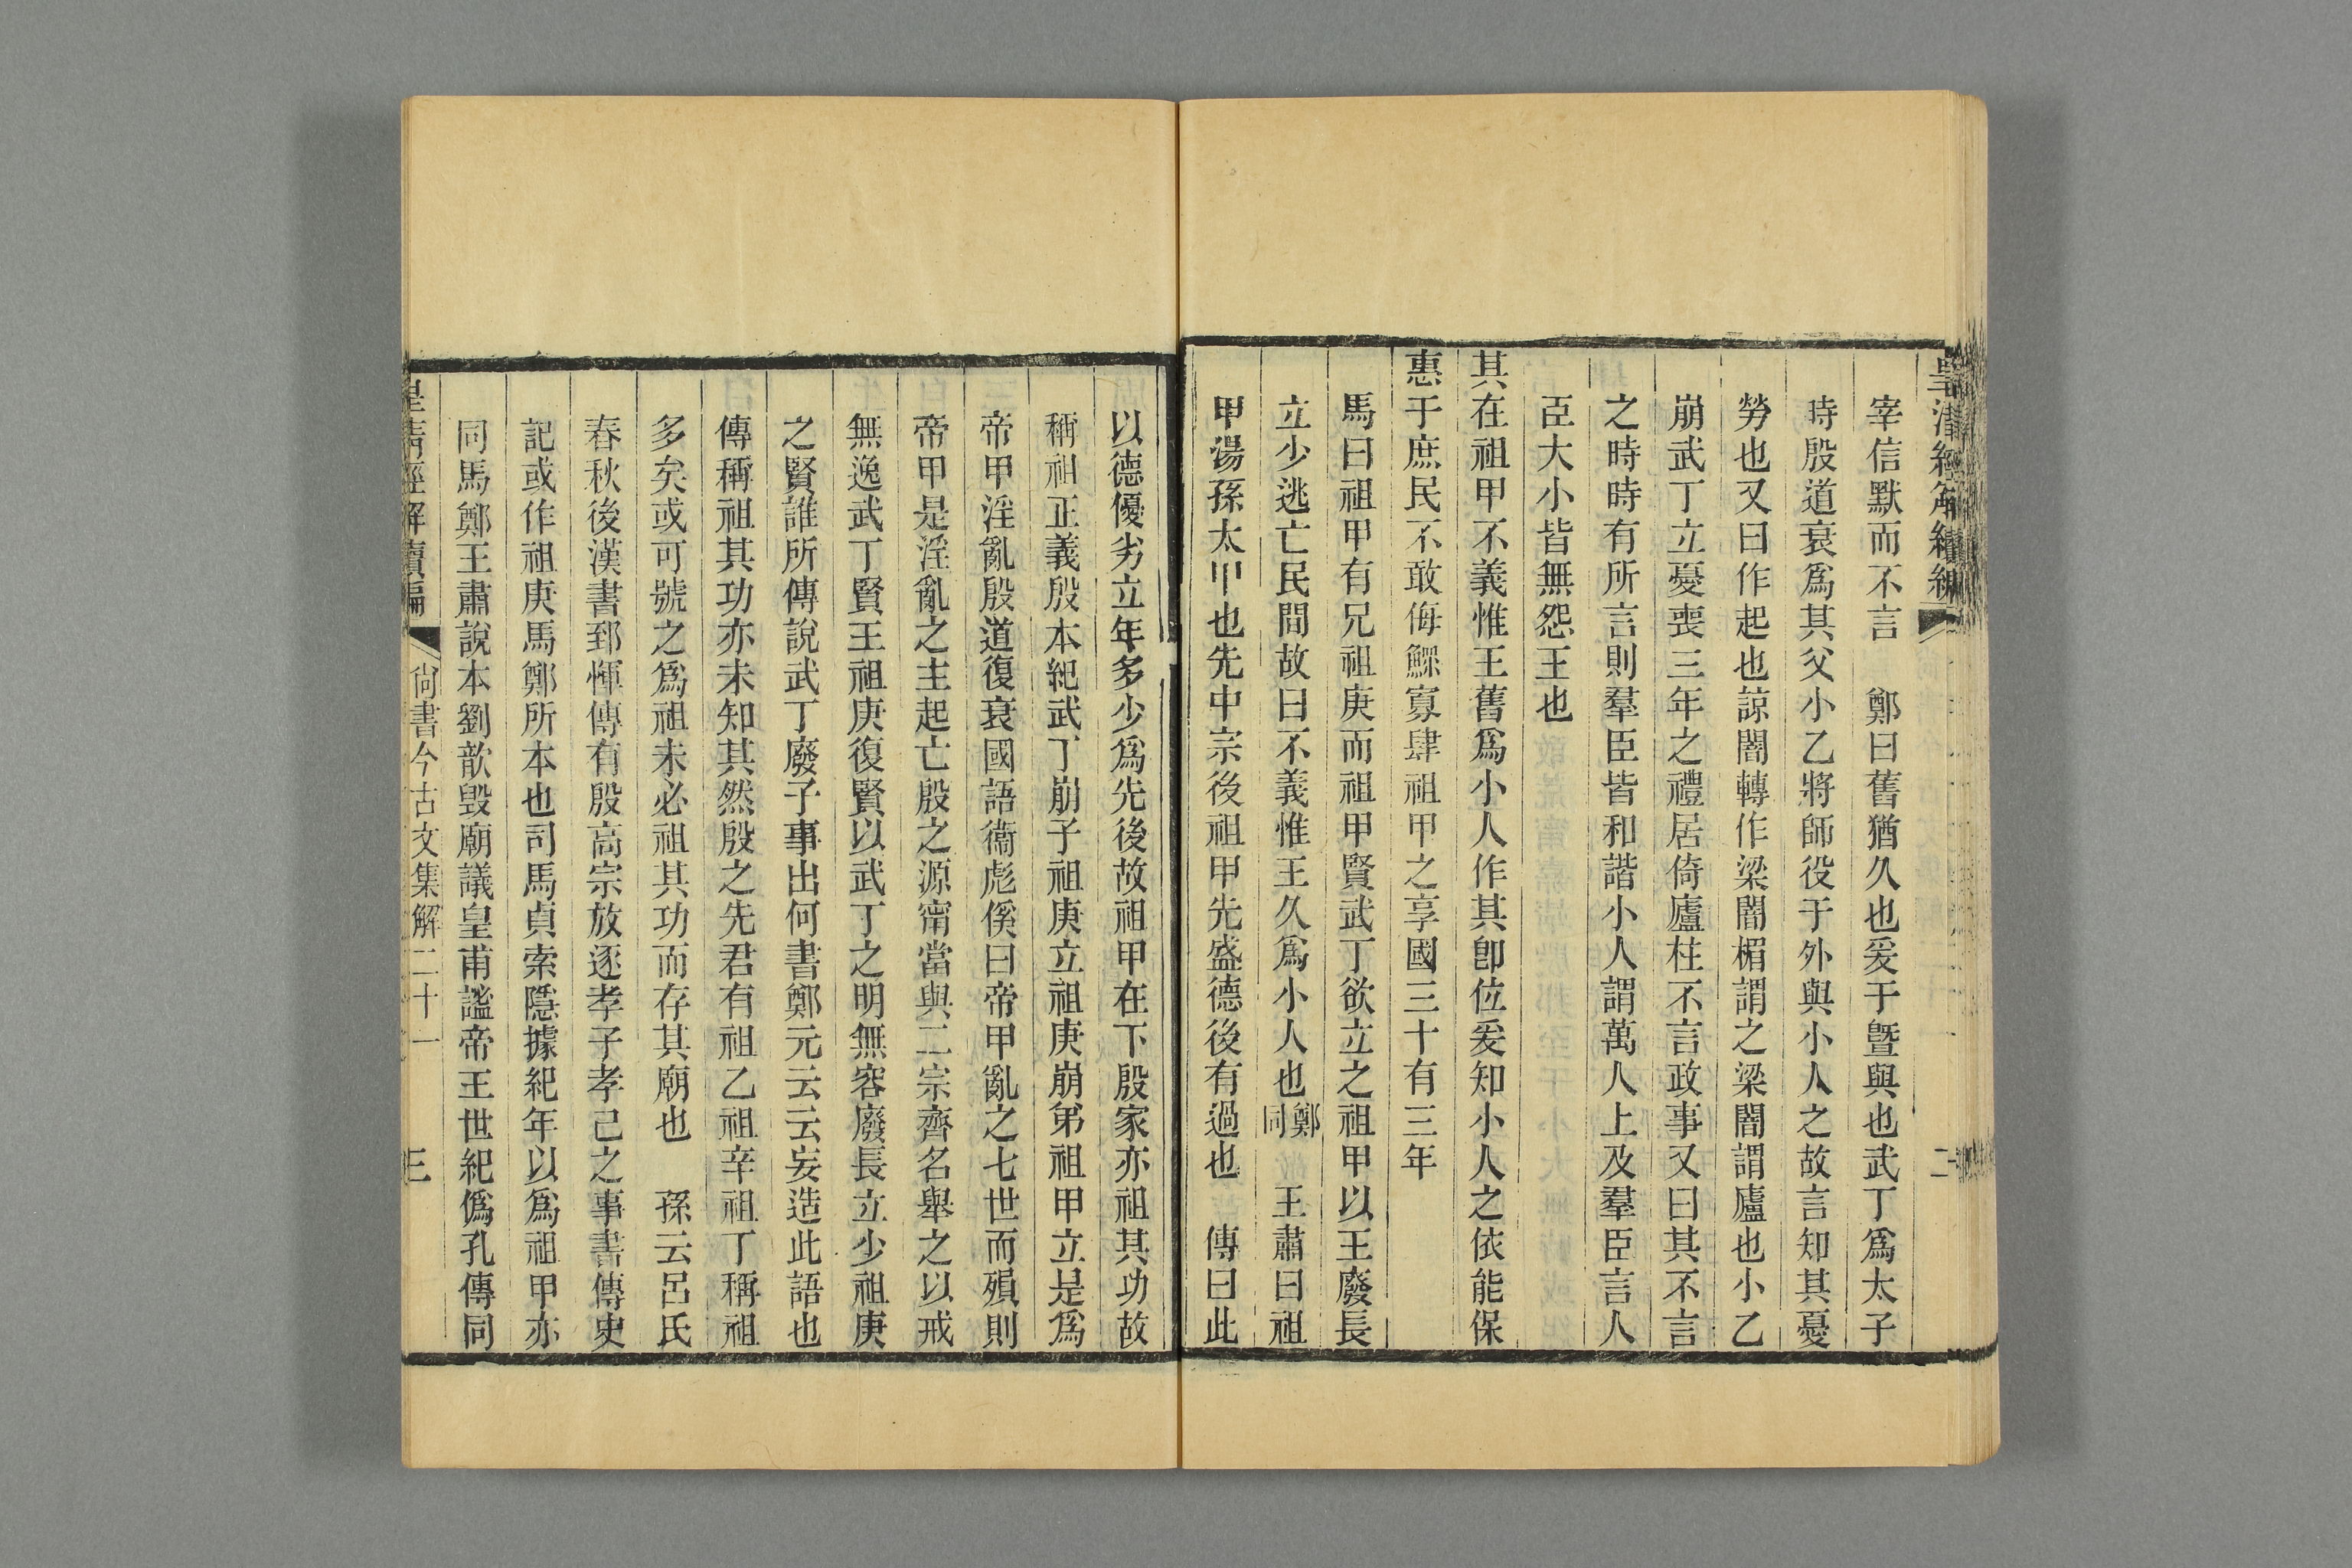 皇清經解續編 二
宰信默而不言 鄭曰舊猶久也爰于曁與也武丁爲太子
時殷道衰爲其父小乙將師役于外與小人之故言知其憂
勞也又曰作起也諒闇轉作梁闇楣謂之梁闇謂廬也小乙
崩武丁立憂喪三年之禮居倚廬柱不言政事又曰其不言
之時時有所言則羣臣皆和諧小人謂萬人上及羣臣言人
臣大小皆無怨王也
其在祖甲不義惟王舊爲小人作其卽位爰知小人之依能保
惠于庶民不敢侮鰥寡肆祖甲之享國三十有三年
馬曰祖甲有兄祖庚而祖甲賢武丁欲立之祖甲以王廢長
立少逃亡民間故曰不義惟王久爲小人也鄭同 王肅曰祖
甲湯孫太甲也先中宗後祖甲先盛德後有過也 傳曰此
以德優劣立年多少爲先後故祖甲在下殷家亦祖其功故
稱祖正義殷本紀武丁崩子祖庚立祖庚崩弟祖甲立是爲
帝甲淫亂殷道復衰國語衞彪傒曰帝甲亂之七世而殞則
帝甲是淫亂之主起亡殷之源甯當與二宗齊名舉之以戒
無逸武丁賢王祖庚復賢以武丁之明無容廢長立少祖庚
之賢誰所傳說武丁廢子事出何書鄭元云云妄造此語也
傳稱祖其功亦未知其然殷之先君有祖乙祖辛祖丁稱祖
多矣或可號之爲祖未必祖其功而存其廟也 孫云呂氏
春秋後漢書郅惲傳有殷高宗放逐孝子孝己之事書傳史
記或作祖庚馬鄭所本也司馬貞索隱據紀年以爲祖甲亦
同馬鄭王肅說本劉歆毀廟議皇甫謐帝王世紀僞孔傳同
皇淸經解續編 尙書今古文集解二十一 三